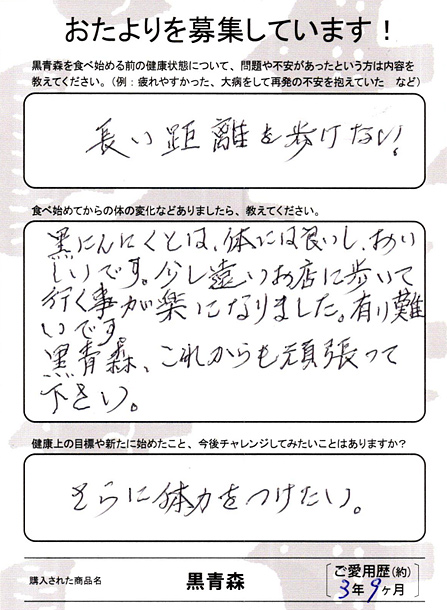 おたよりを募集しています！
黒青森を食べ始める前の健康状態について、問題や不安があったという方は内容を
教えてください。（例：疲れやすかった、大病をして再発の不安を抱えていた　など）
長い距離を歩けない！
食べ始めてからの体の変化などありましたら、教えてください。
黒にんにくとは、体には良いし、おい
しいです。少し遠いお店に歩いて
行く事が楽になりました。有り難
いです。
黒青森、これからも頑張って
下さい。
健康上の目標や新たに始めたこと、今後チャレンジしてみたいことはありますか？
さらに体力をつけたい。
購入された商品名
黒青森
ご愛用歴（約）
3年9ヶ月